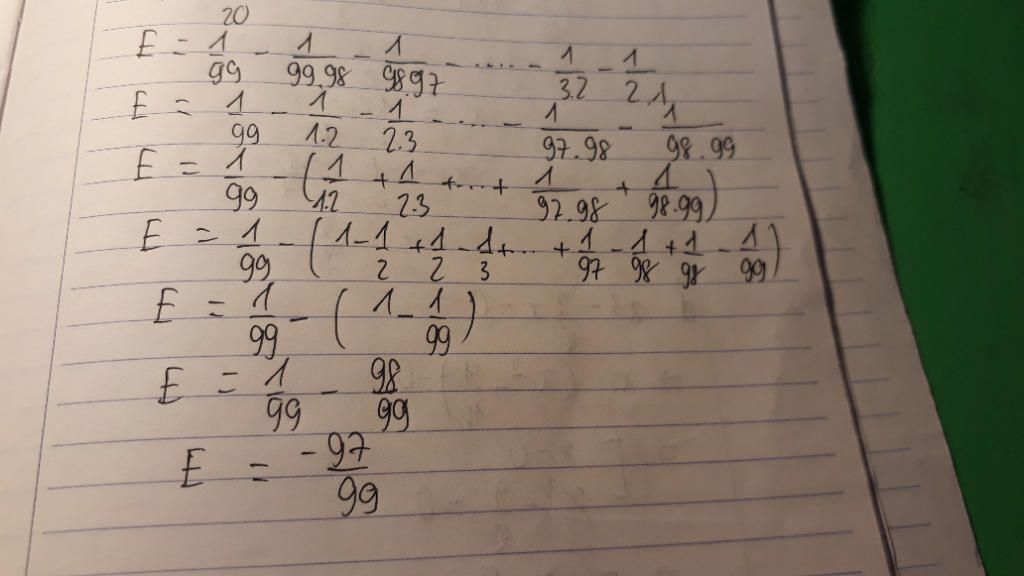 20
E = 1/99 - 1/99.98 - 1/98.97 - ..... - 1/3.2 - 1/2.1
E = 1/99 - 1/1.2 - 1/2.3 - ... - 1/97.98 - 1/98.99
E = 1/99 - (1/1.2 + 1/2.3 + ... + 1/97.98 + 1/98.99)
E = 1/99 - (1 - 1/2 + 1/2 - 1/3 + ... + 1/97 - 1/98 + 1/98 - 1/99)
E = 1/99 - (1 - 1/99)
E = 1/99 - 98/99
E = -97/99